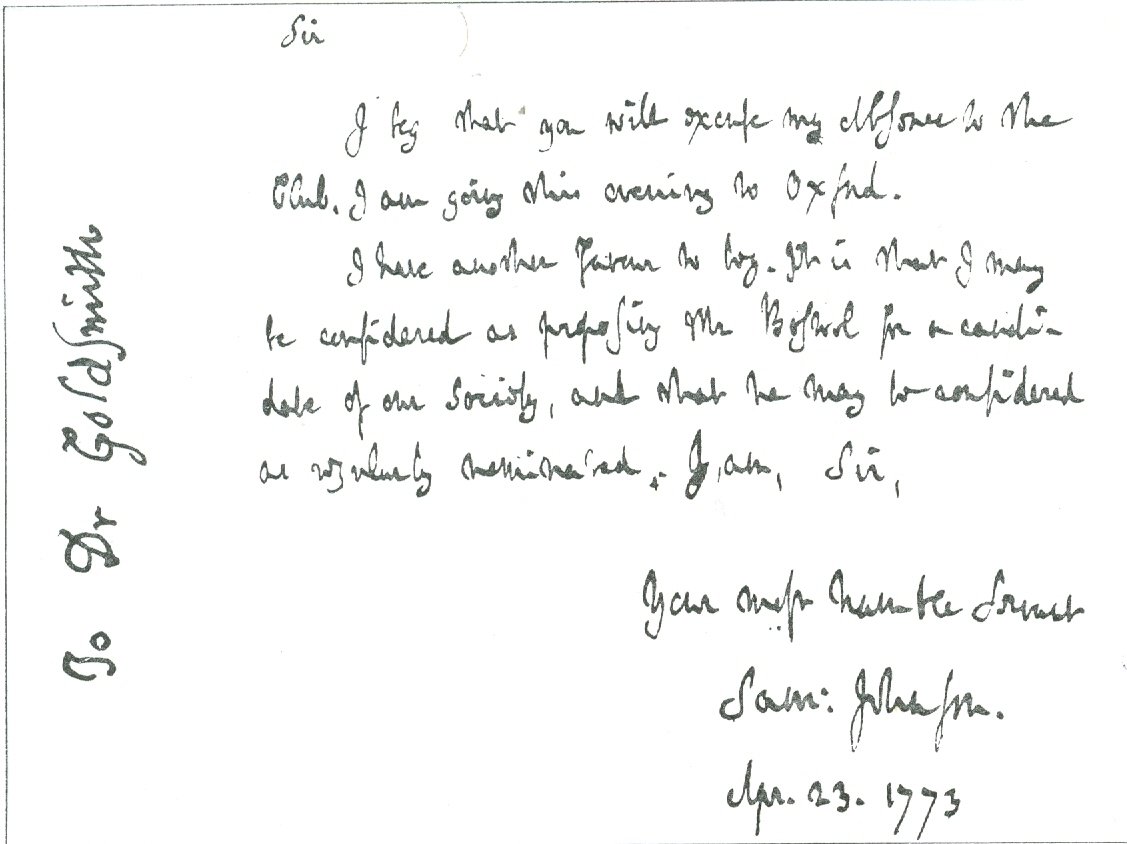 Sir
I beg that you will excuse my Absence to the
Club. I am going this evening to Oxford.
I have another favour to beg. It is that I may
be considered as proposing Mr Boswel for a candi-
date of our Society, and that he may be considered
as regularly nominated. I, am, Sir,
Your most humble Servant
Sam: Johnson.
Apr. 23. 1773
To Dr Goldsmith